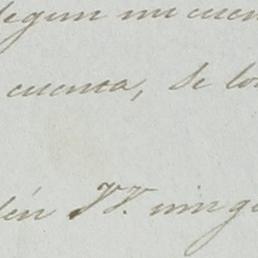 segun mi cuen
cuenta, de lo
én VV. ning